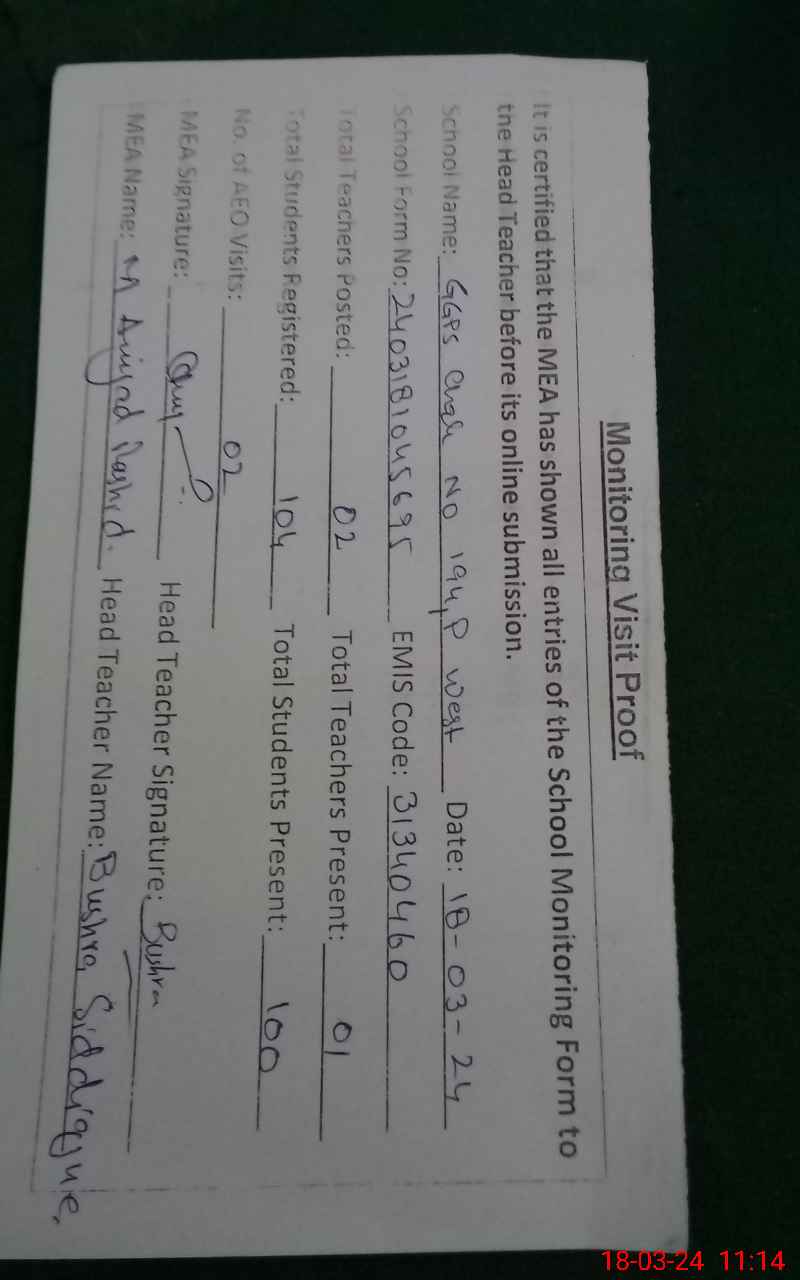 Monitoring Visit Proof
It is certified that the MEA has shown all entries of the School Monitoring Form to
the Head Teacher before its online submission.
School Name: GGPS Chak No 194,P West Date: 18-03-24
School Form No: 2403181045695 EMIS Code: 31340460
Total Teachers Posted: 02 Total Teachers Present: 01
Total Students Registered: 104 Total Students Present: 100
No. of AEO Visits: 02
MEA Signature: Head Teacher Signature: Bushra
MEA Name: M Amjad Rashid. Head Teacher Name: Bushra Siddique.
18-03-24 11:14